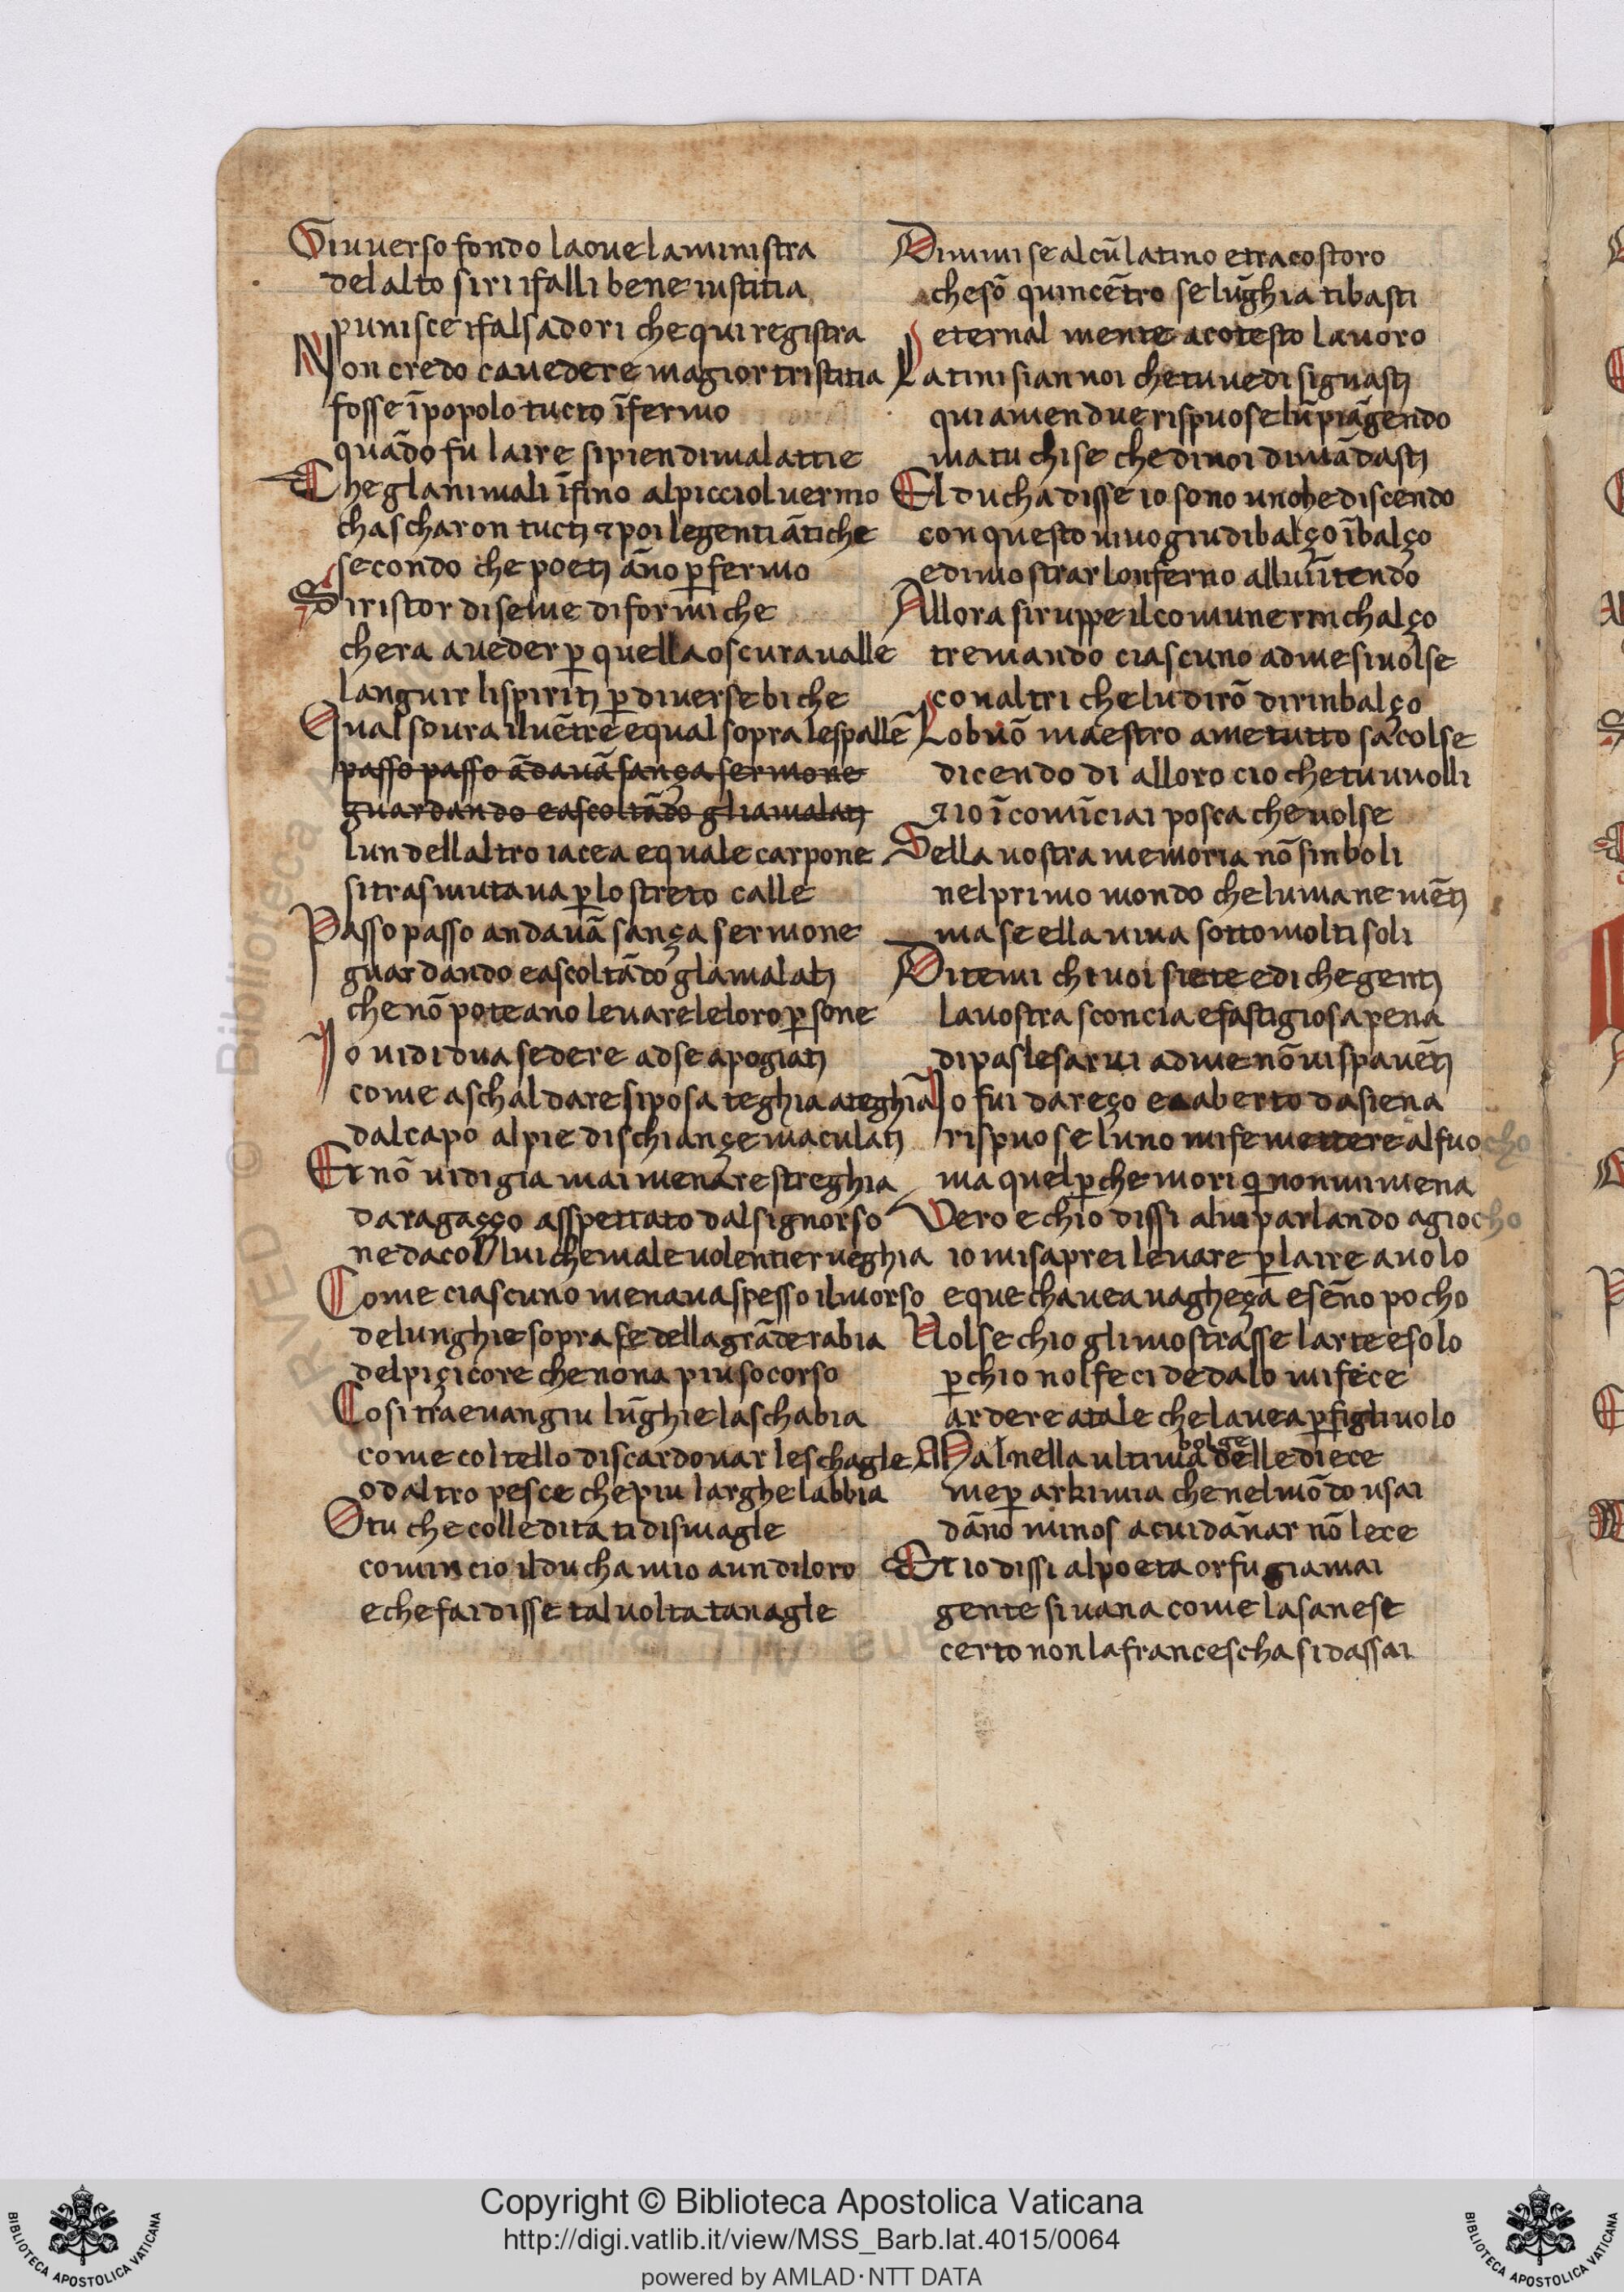 Giu verso fondo la ove la ministra
del alto siri ifalli bene iustitia
punisce ifalsadori che qui registra
Non credo ca vedere magior tristitia
fosse ī popolo tucto īfermo
quādo fu laire si pien di malattie
Che glanimali īfino al picciol vermo
chascharon tucti ⁊ poi le genti ātiche
secondo che poeti āno per fermo
Si ristor di seme di formiche
chera a veder per quella oscura valle
languir li spiriti per diverse biche
Qual soura il vētre e qual sopra le spalle
passo passo ādavā sança sermone
guardando e ascoltādo gli amalati
lun dellaltro iacea e quale carpone
si trasmutava per lo streto calle
Passo passo andavā sança sermone
guardando e ascoltādo glamalati
che nō poteano levare le loro persone
Io vidi dua sedere ad se apogiati
come aschaldare si posa teghia a teghia
dal capo al pie di schiançe maculati
Et nō vidi gia mai menare streghia
da ragaçço asspettato dal signorso
ne da collui che male volentier veghia
Come ciascuno menava spesso il morso
de lunghie sopra se della grāde rabia
del piçicore che nona piu socorso
Cosi traevan giu lūghie la schabia
come coltello di scardovar le schagle
o daltro pesce che piu larghe labbia
O tu che colle dita ti dismagle
comincio il ducha mio a un di loro
e che fai disse tal volta tanagle
Dimmi se alcū latino e tra costoro
che sō quincētro se lūghia ti basti
eternal mente a cotesto lavoro
Latini sian noi che tu vedi si guasti
qui amendue rispuose lū piāgendo
ma tu chi se che di noi dimādasti
El ducha disse io sono un che discendo
con questo vivo giu di balço ī balço
e di mostrar lonferno allui ītendo
Allora si ruppe il comune rinchalço
tremando ciascuno ad me si volse
con altri che ludirō di rinbalço
Lo buō maestro a me tutto sacolse
dicendo di alloro cio che tu vuolli
⁊ io ī comīciai posca che volse
Se lla vostra memoria nō sinboli
nel primo mondo che lumane mēti
ma se ella viva sotto molti soli
Ditemi chi voi siete e di che genti
la vostra sconcia e fastigiosa pena
di paslesarvi ad me nō vi spavēti
Io fui dareço e aberto da siena
rispuose luno mi fe mettere al fuocho
ma quel per che mori qui non mi mena
Vero e chio dissi alui parlando a giocho
io mi saprei levare per laire a volo
e que chavea vagheça e sēno pocho
Volse chio gli mostrasse larte e solo
perchio nol feci dedalo mi fece
ardere a tale che lavea per figliuolo
Ma lnella ultima bolge delle diece
me per arkimia che nel mōdo usai
dāno minos a cui dānar nō lece
Et io dissi al poeta or fu gia mai
gente si vana come la sanese
certo non la francescha si dassai
Copyright © Biblioteca Apostolica Vaticana
http://digi.vatlib.it/view/MSS_Barb.lat.4015/0064
powered by AMLAD·NTT DATA
BIBLIOTECA APOSTOLICA VATICANA
BIBLIOTECA APOSTOLICA VATICANA